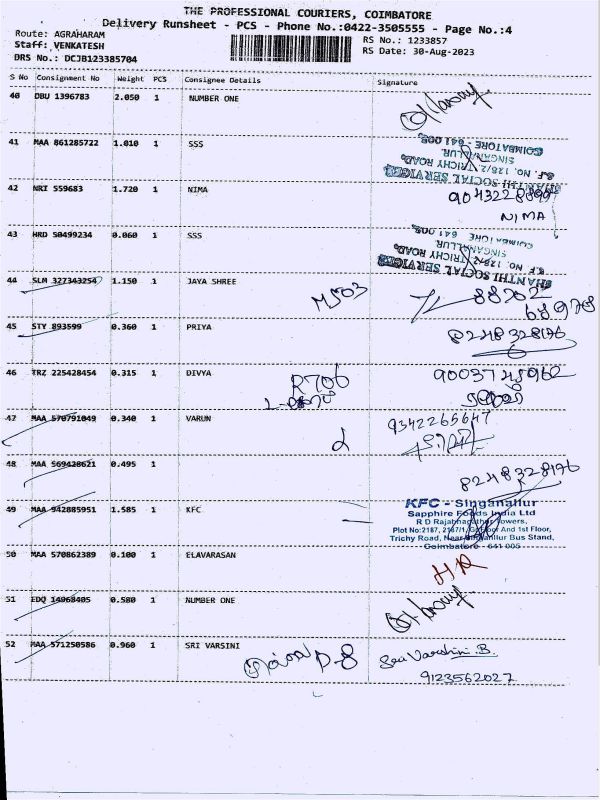 THE PROFESSIONAL COURIERS, COIMBATORE
Delivery Runsheet - PCS - Phone No.:0422-3505555 - Page No.:4
Route: AGRAHARAM
RS No.: 1233857
Staff: VENKATESH
RS Date: 30-Aug-2023
DRS No.: DCJB123385704
S No Consignment No Weight PCS Consignee Details Signature
40 DBU 1396783 2.050 1 NUMBER ONE
41 MAA 861285722 1.010 1 SSS
COIMBATORE - 641 005.
SINGANALLUR,
S.F. No. 128/2, TRICHY ROAD,
SHANTHI SOCIAL SERVICES
42 NRI 559683 1.720 1 NIMA
NIMA
43 HRD 50499234 0.060 1 SSS
COIMBATORE 641 005.
SINGANALLUR,
S.F. No. 128/2, TRICHY ROAD,
SHANTHI SOCIAL SERVICES
44 SLM 327343254 1.150 1 JAYA SHREE M503 88702
68978
45 STY 893599 0.360 1 PRIYA 8248328176
46 TRZ 225428454 0.315 1 DIVYA R706 9003745962
47 MAA 570791049 0.340 1 VARUN 9342265647
48 MAA 569428621 0.495 1 8248328176
49 MAA 942885951 1.585 1 KFC
KFC - Singanallur
Sapphire Foods India Ltd
R D Rajabhagathar Towers,
Plot No:2187, 2187/1, Ground And 1st Floor,
Trichy Road, Near Singanllur Bus Stand,
Coimbatore - 641 005
50 MAA 570862389 0.100 1 ELAVARASAN
51 EDQ 14968405 0.580 1 NUMBER ONE
52 MAA 571250586 0.960 1 SRI VARSINI D-8 Sri Varshini.B.
9123562027